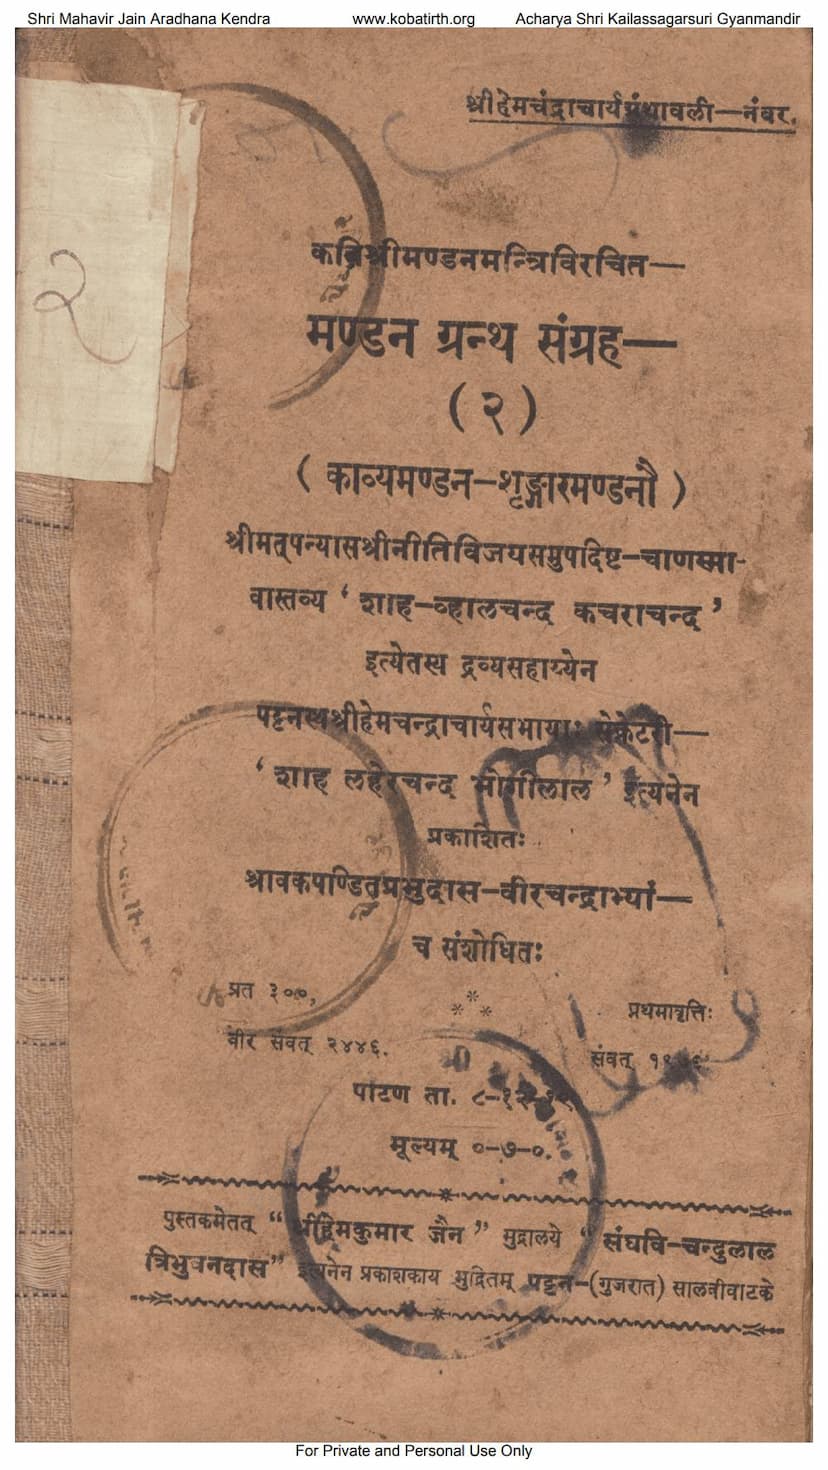 Shri Mahavir Jain Aradhana Kendra www.kobatirth.org Acharya Shri Kailassagarsuri Gyanmandir
श्रीहेमचंद्राचार्यग्रंथावली—नंबर.
२
कविश्रीमण्डनमन्त्रिविरचित—
मण्डन ग्रन्थ संग्रह—
(२)
( काव्यमण्डन–शृङ्गारमण्डनौ )
श्रीमत्पन्यासश्रीनीतिविजयसमुपदिष्ट–चाणस्मा-
वास्तव्य ‘ शाह–व्हालचन्द कचराचन्द ’
इत्येतस्य द्रव्यसहाय्येन
पट्टनस्थश्रीहेमचन्द्राचार्यसभायाः सेक्रेटरी—
‘ शाह लहेरचन्द भोगीलाल ’ इत्यनेन
प्रकाशितः
श्रावकपण्डितप्रभुदास–वीरचन्द्राभ्यां—
च संशोधितः
प्रत ३००, प्रथमावृत्तिः
वीर संवत् २४४६. संवत्
पाटण ता. ८–१२–
मूल्यम् ०–७–०.
पुस्तकमेतत् “ जैन ” मुद्रालये “ संघवि–चन्दुलाल
त्रिभुवनदास” इत्यनेन प्रकाशकाय मुद्रितम् पट्टन–(गुजरात) सालवीवाटके
For Private and Personal Use Only